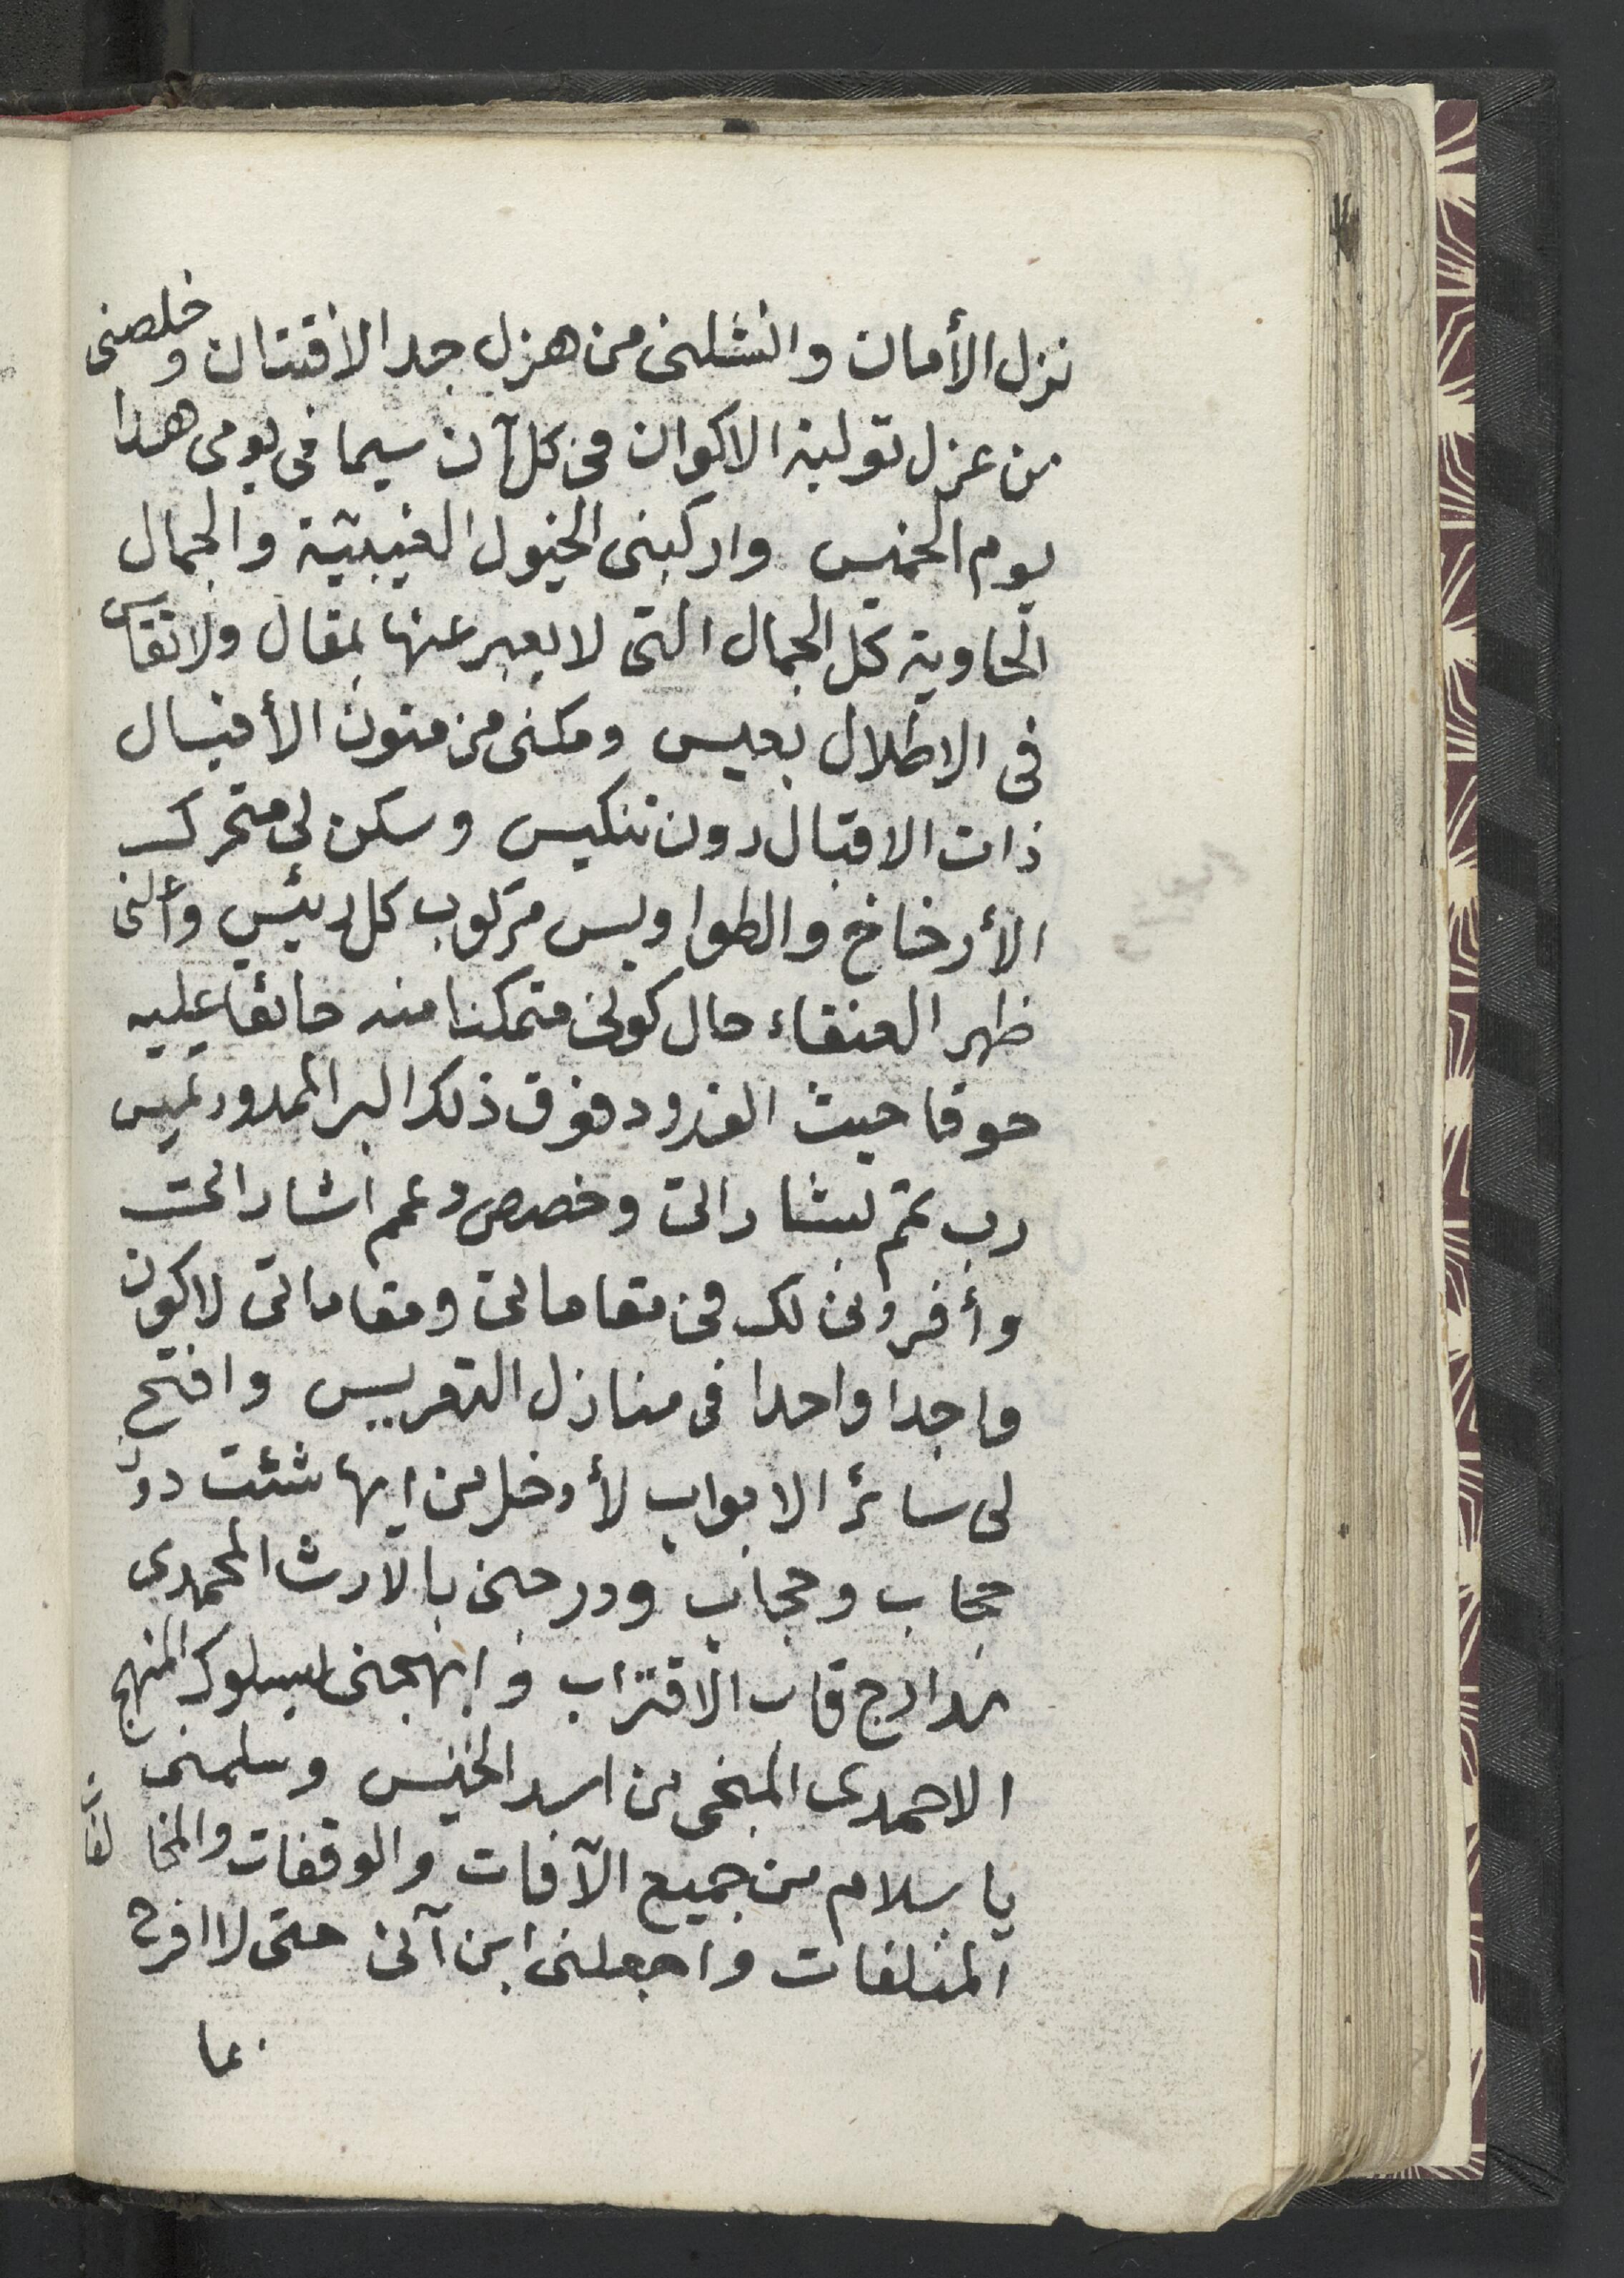 نزل الأمان وانشلنى من هزل جد الافتتان وخلصنى
من عزل تولية الاكوان فى كل آن سيما فى يومى هذا
يوم الخميس واركبنى الخيول الغيبية والجمال
الحاوية كل الجمال التى لا يعبر عنها بمقال ولا تقاس
فى الاطلال بعيس ومكنى من متون الأفيال
ذات الاقبال دون تنكيس وسكن لى متحرك
الأرخاخ والطواويس مركوب كل رئيس وأنلنى
ظهر العنقاء حال كونى متمكنا منه حائقا عليه
حوقا حيث الفدود فوق ذلك البر الممدود تميس
رب تمم بشاراتى وخصص وعمم اشاراتى
وأفردنى لك فى مقاماتى ومقاماتى لاكون
واجدا واحدا فى منازل التعريس وافتح
لى سائر الابواب لأدخل من ايها شئت دون
حجاب وحجاب ودرجنى بالارث المحمدى
مدارج قاب الاقتراب وابهجنى بسلوك المنهج
الاحمدى المنجى من اسد الخيس وسلمنى
يا سلام من جميع الآفات والوقفات والمخالفات
المتلفات واجعلنى ابن آنى حتى لا افرح
بما